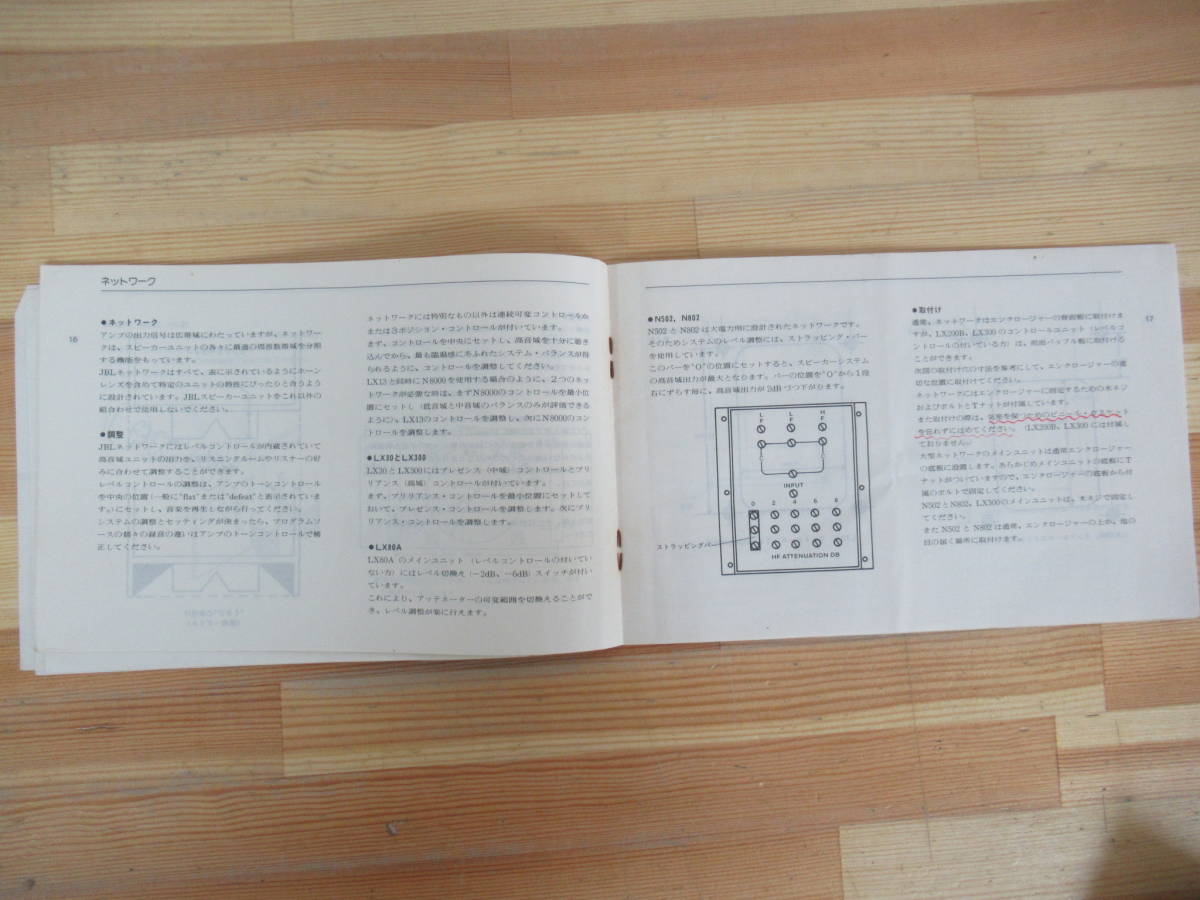 ネットワーク
16
●ネットワーク
アンプの出力信号は広帯域にわたっていますが、ネットワー
クは、スピーカーユニットの各々に最適の周波数帯域を分割
する機能をもっています。
JBLネットワークはすべて、表に示されているようにホーン
レンズを含めて特定のユニットの特性にぴったりと合うよう
に設計されています。JBLスピーカーユニットをこれ以外の
組合わせで使用しないでください。
●調整
JBLネットワークにはレベルコントロールが内蔵されていて
高音域ユニットの出力を、リスニングルームやリスナーの好
みに合わせて調整することができます。
レベルコントロールの調整は、アンプのトーンコントロール
を中央の位置(一般に"flat"または"defeat"と表示されていま
す。)にセットし、音楽を再生しながら行ってください。
システムの調整とセッティングが決まったら、プログラムソ
ースの個々の録音の違いはアンプのトーンコントロールで補
正してください。
ネットワークには特別なもの以外は連続可変コントロールか
または3ポジション・コントロールが付いています。
まず、コントロールを中央にセットし、高音域を十分に聴き
込んでから、最も臨場感にあふれたシステム・バランスが得
られるように、コントロールを調整してください。
LX13と同時にN8000を使用する場合のように、2つのネッ
トワークが必要な時は、まずN8000のコントロールを最小位
置にセットし(低音域と中音域のバランスのみが評価できる
ように)、LX13のコントロールを調整し、次にN8000のコン
トロールを調整します。
●LX30とLX300
LX30とLX300にはプレゼンス(中域)コントロールとブリ
リアンス(高域)コントロールが付いています。
まず、ブリリアンス・コントロールを最小位置にセットして
おいて、プレゼンス・コントロールを調整します。次にブリ
リアンス・コントロールを調整します。
●LX80A
LX80Aのメインユニット(レベルコントロールの付いてい
ない方)にはレベル切換え(−2dB、−6dB)スイッチが付い
ています。
これにより、アッテネーターの可変範囲を切換えることがで
き、レベル調整が楽に行えます。
●N502, N802
N502とN802は大電力用に設計されたネットワークです。
そのためシステムのレベル調整には、ストラッピング・バー
を使用しています。
このバーを"0"の位置にセットすると、スピーカーシステム
の高音域出力が最大となります。バーの位置を"0"から1段
右にずらす毎に、高音域出力が2dBづつ下がります。
LF LF HF
INPUT
0 2 4 6 8
ストラッピングバー
HF ATTENUATION DB
●取付け
通常、ネットワークはエンクロージャーの背面部に取付けま
すが、LX200B、LX300のコントロールユニット(レベルコ
ントロールの付いている方)は、前面バッフル板に取付ける
ことができます。
次図の取付け穴の寸法を参考にして、エンクロージャーの適
切な位置に取付けてください。
ネットワークにはエンクロージャーに固定するための木ネジ
およびボルトとTナットが付属しています。
また取付けの際は、気密を保つためのビニール・ガスケット
を忘れずにはめてください。(LX200B、LX300には付属し
ておりません。)
大型ネットワークのメインユニットは通常エンクロージャー
の底板に設置します。あらかじめメインユニットの底板にT
ナットがついていますので、エンクロージャーの底板から付
属のボルトで固定してください。
N502とN802、LX300のメインユニットは、木ネジで固定し
てください。
またN502とN802は通常、エンクロージャーの上か、他の
目の届く場所に取付けます。
17